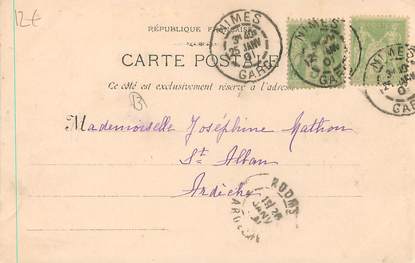 12€
RÉPUBLIQUE FRANÇAISE
CARTE POSTALE
Ce côté est exclusivement réservé à l'adresse
NIMES
25 JANV
01
GARE
NIMES
GARE
NIMES
GARE
Mademoiselle Joséphine Mathon
St Alban
Ardèche
JANV